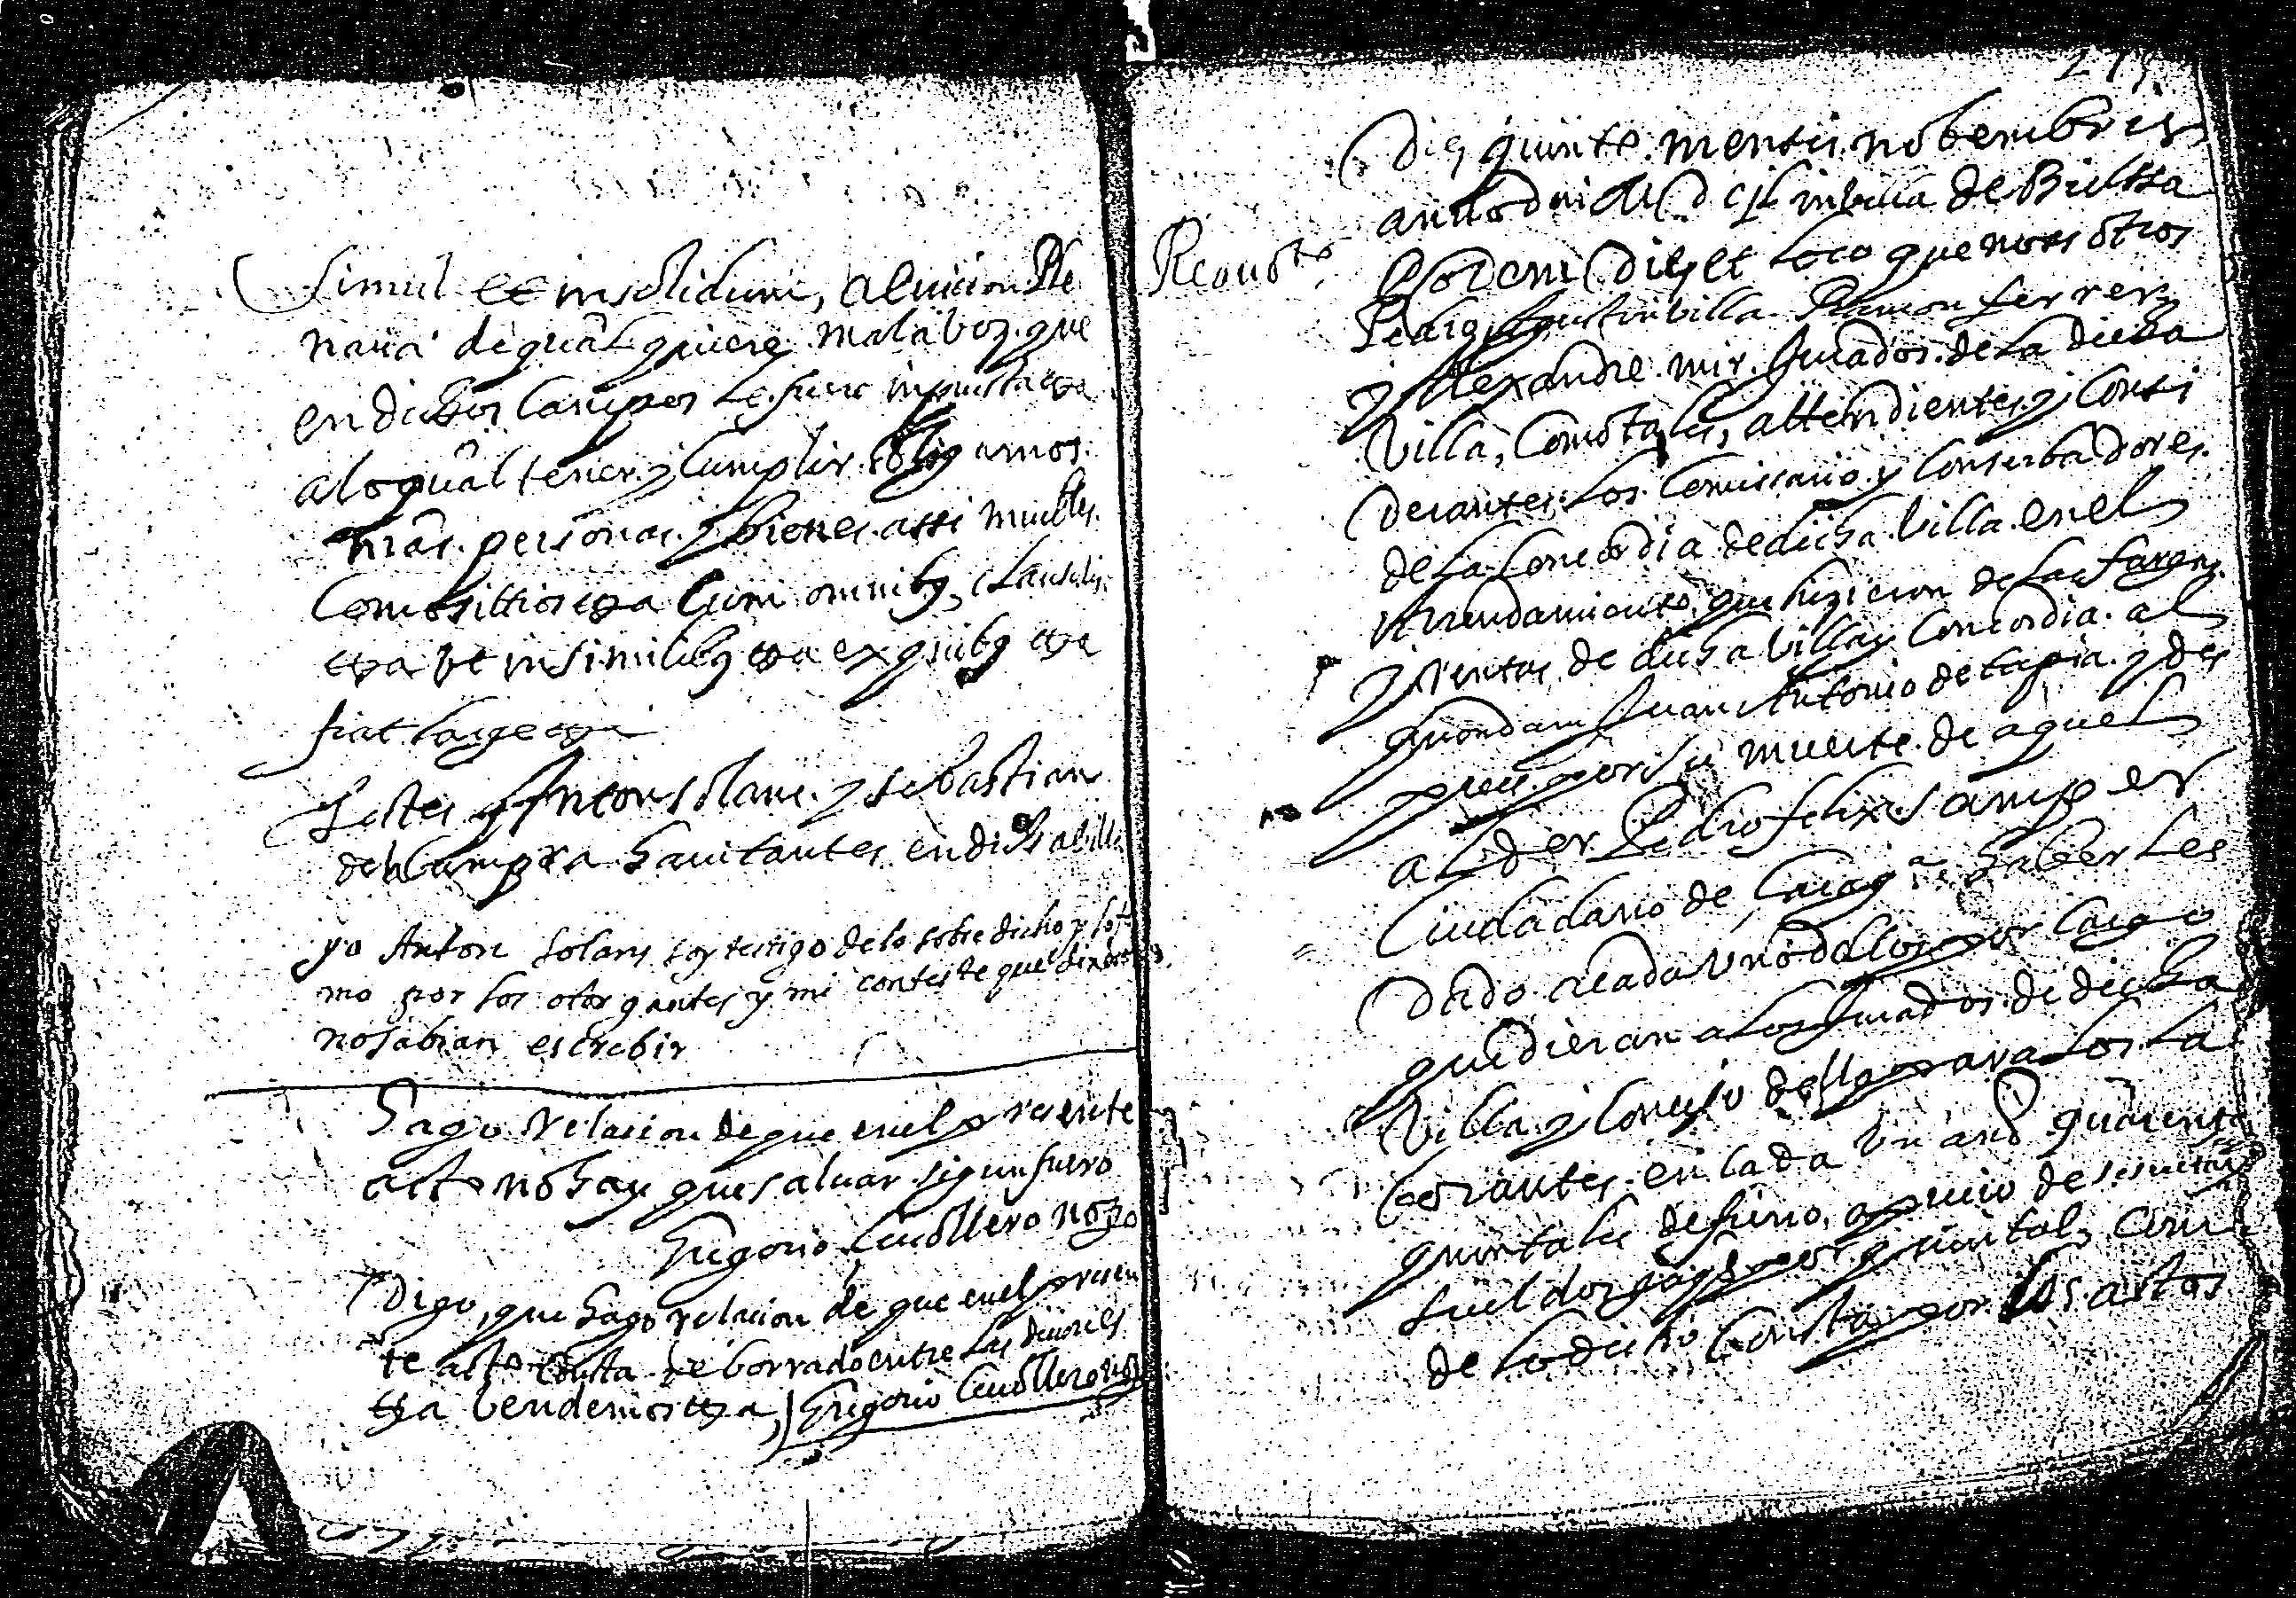 Simul et in solidum, a euicion Ple
naria de qualquiere mala boz que
en dichos campos le fuere inpuesta etta
a lo qual tener y cumplir obligamos
nras. personas y bienes assi muebles
Como sittios etta Cum omnibg clausulis
etta vt in similibg etta ex quibg etta
fiat large etta
Testes Anton solans y sebastian
de la Campra hauitantes en dicha billa
yo Anton solans soy testigo de lo sobre dicho y fir
mo por los otorgantes y mi conteste que dixeron
no sabian escrebir
Hago relacion de que en el presente
acto no hay que saluar sigun fuero
Grigorio Cauollero noto
Digo, que hago relacion de que en el presen
te acto consta de borrado entre las diciones
etta bendemos etta, Grigorio Cauollero noto
Die quinto mensis nobembris
anno dni in billa de Bielssa
Eodem Die et loco que nosotros
Pedro Agustin villa Ramon ferrer
y Alexandre mir Jurados de la dicha
Villa, Como tales, attendientes y Consi
derantes los Comissario y Conserbadores
de la Concordia de dicha billa en el
Arrendamiento que hizieron de las
y Rentas de dicha billa y Concordia al
quondam Juan Antonio de tapia y des
pues por su muerte de aquel
al Pedro felix Samper
Ciudadano de Çaragça haberles
Dado a cada uno dellos por cargo
que dieran a los Jurados de dicha
Villa y Concejo della para los la
borantes en cada un año quarenta
quintales de fierro, a precio de sesenta
sueldos por quintal, Como
de lo dicho Consta por los actos